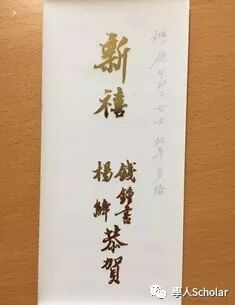 女士
新禧
錢鍾書
楊絳
恭賀
學人Scholar